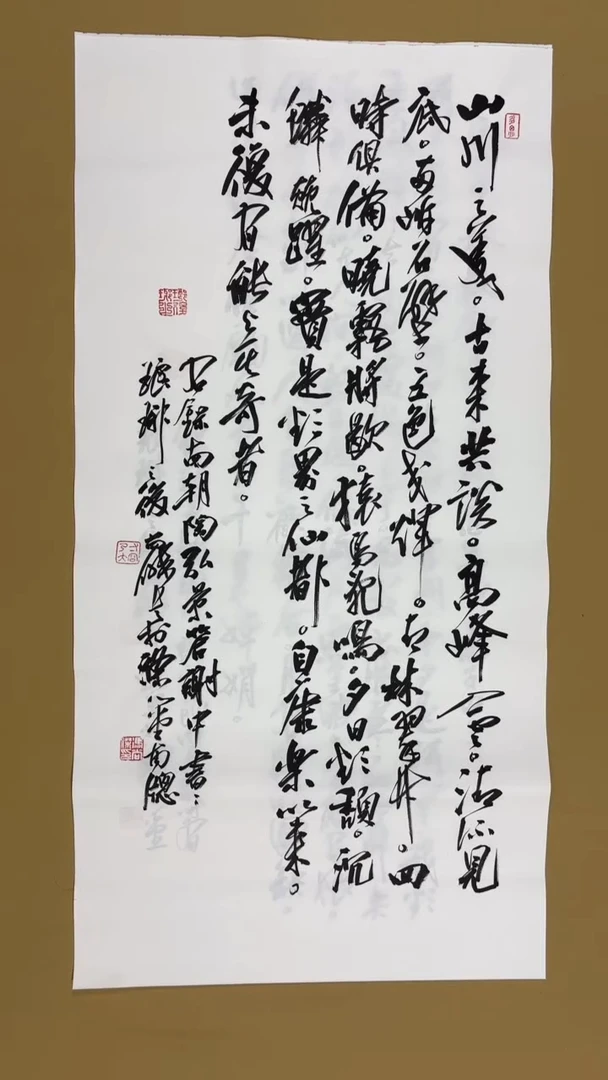 山川之美。古来共談。高峰入雲。清流見
底。兩岸石壁。五色交輝。青林翠竹。四
時俱備。曉霧將歇。猿鳥亂鳴。夕日欲頹。沉
鱗競躍。實是欲界之仙都。自康樂以來。
未復有能與其奇者。
右錄南朝陶弘景答謝中書書
之後 南窗